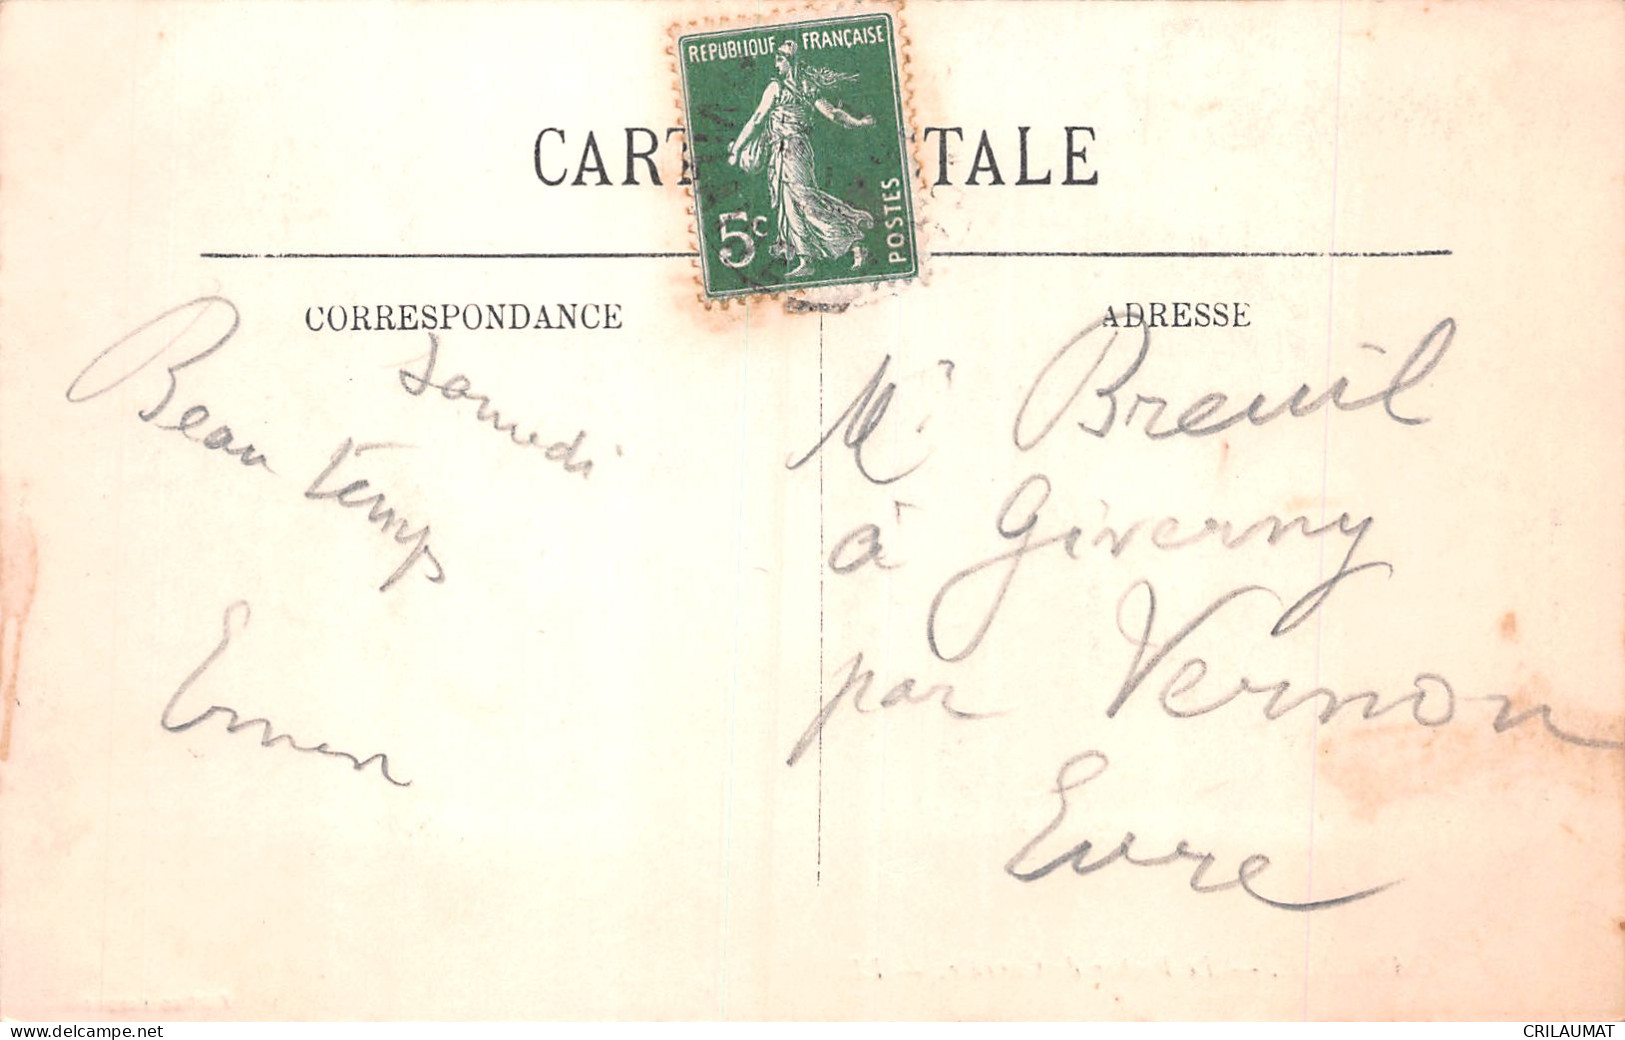 REPUBLIQUE FRANÇAISE
5c
POSTES
CARTE POSTALE
CORRESPONDANCE
ADRESSE
Samedi
Beau temps
Mr Breuil
à Giverny
par Vernon
Eure
www.delcampe.net
CRILAUMAT